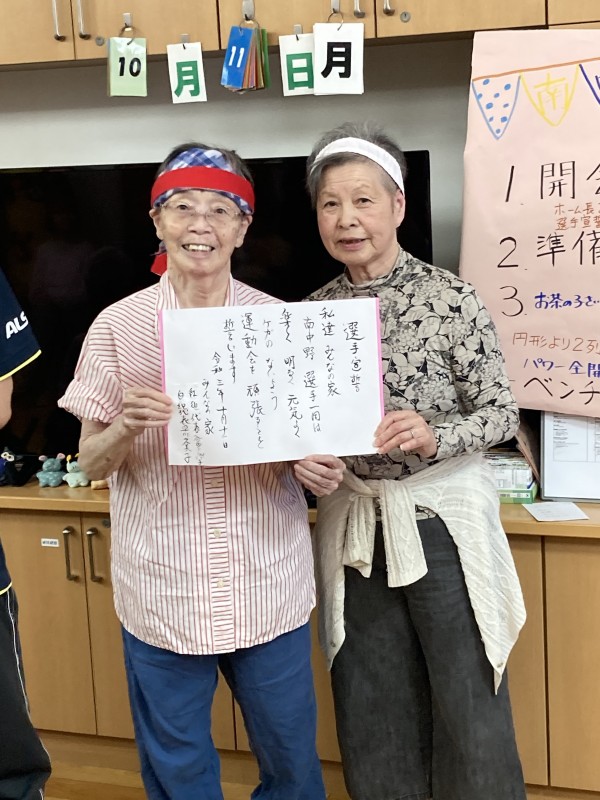 10
月
11
日
月
選手宣誓
私達 みんなの家
南中野 選手一同は
楽しく 明るく 元気よく
ケガの ないよう
運動会を 頑張ることを
誓います
令和 三年 十月十一日
みんなの家
南
1. 開会
ホーム長
選手宣誓
2. 準備
3. お茶の
円形より2列
パワー全開
ベンチ
ALS